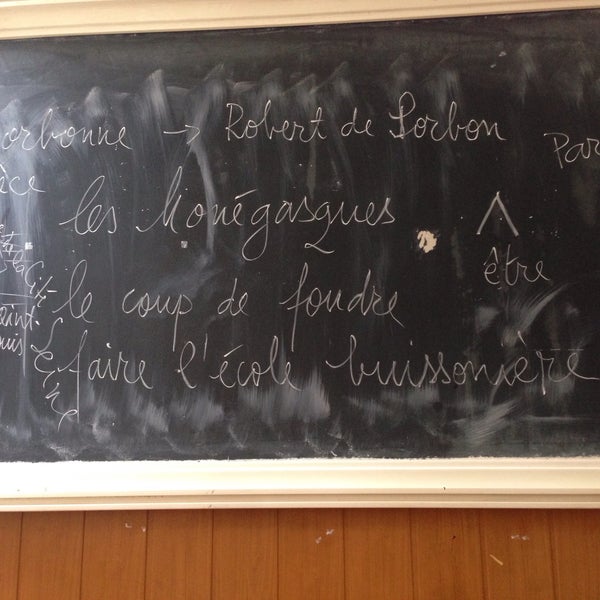 orbonne → Robert de Sorbon
Par
les Monégasques
^
être
la Cité
Seine
le coup de foudre
faire l'école buissonière